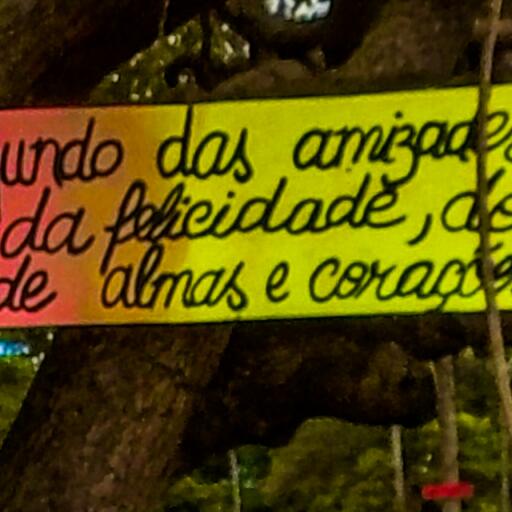 undo das amizade
da felicidade, do
de almas e coraçõe